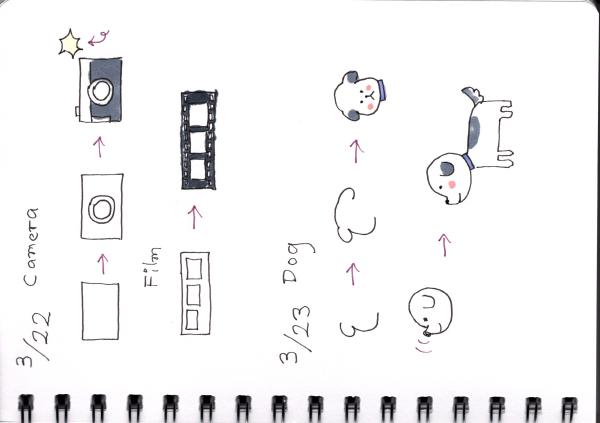 3/22 Camera
Film
3/23 Dog